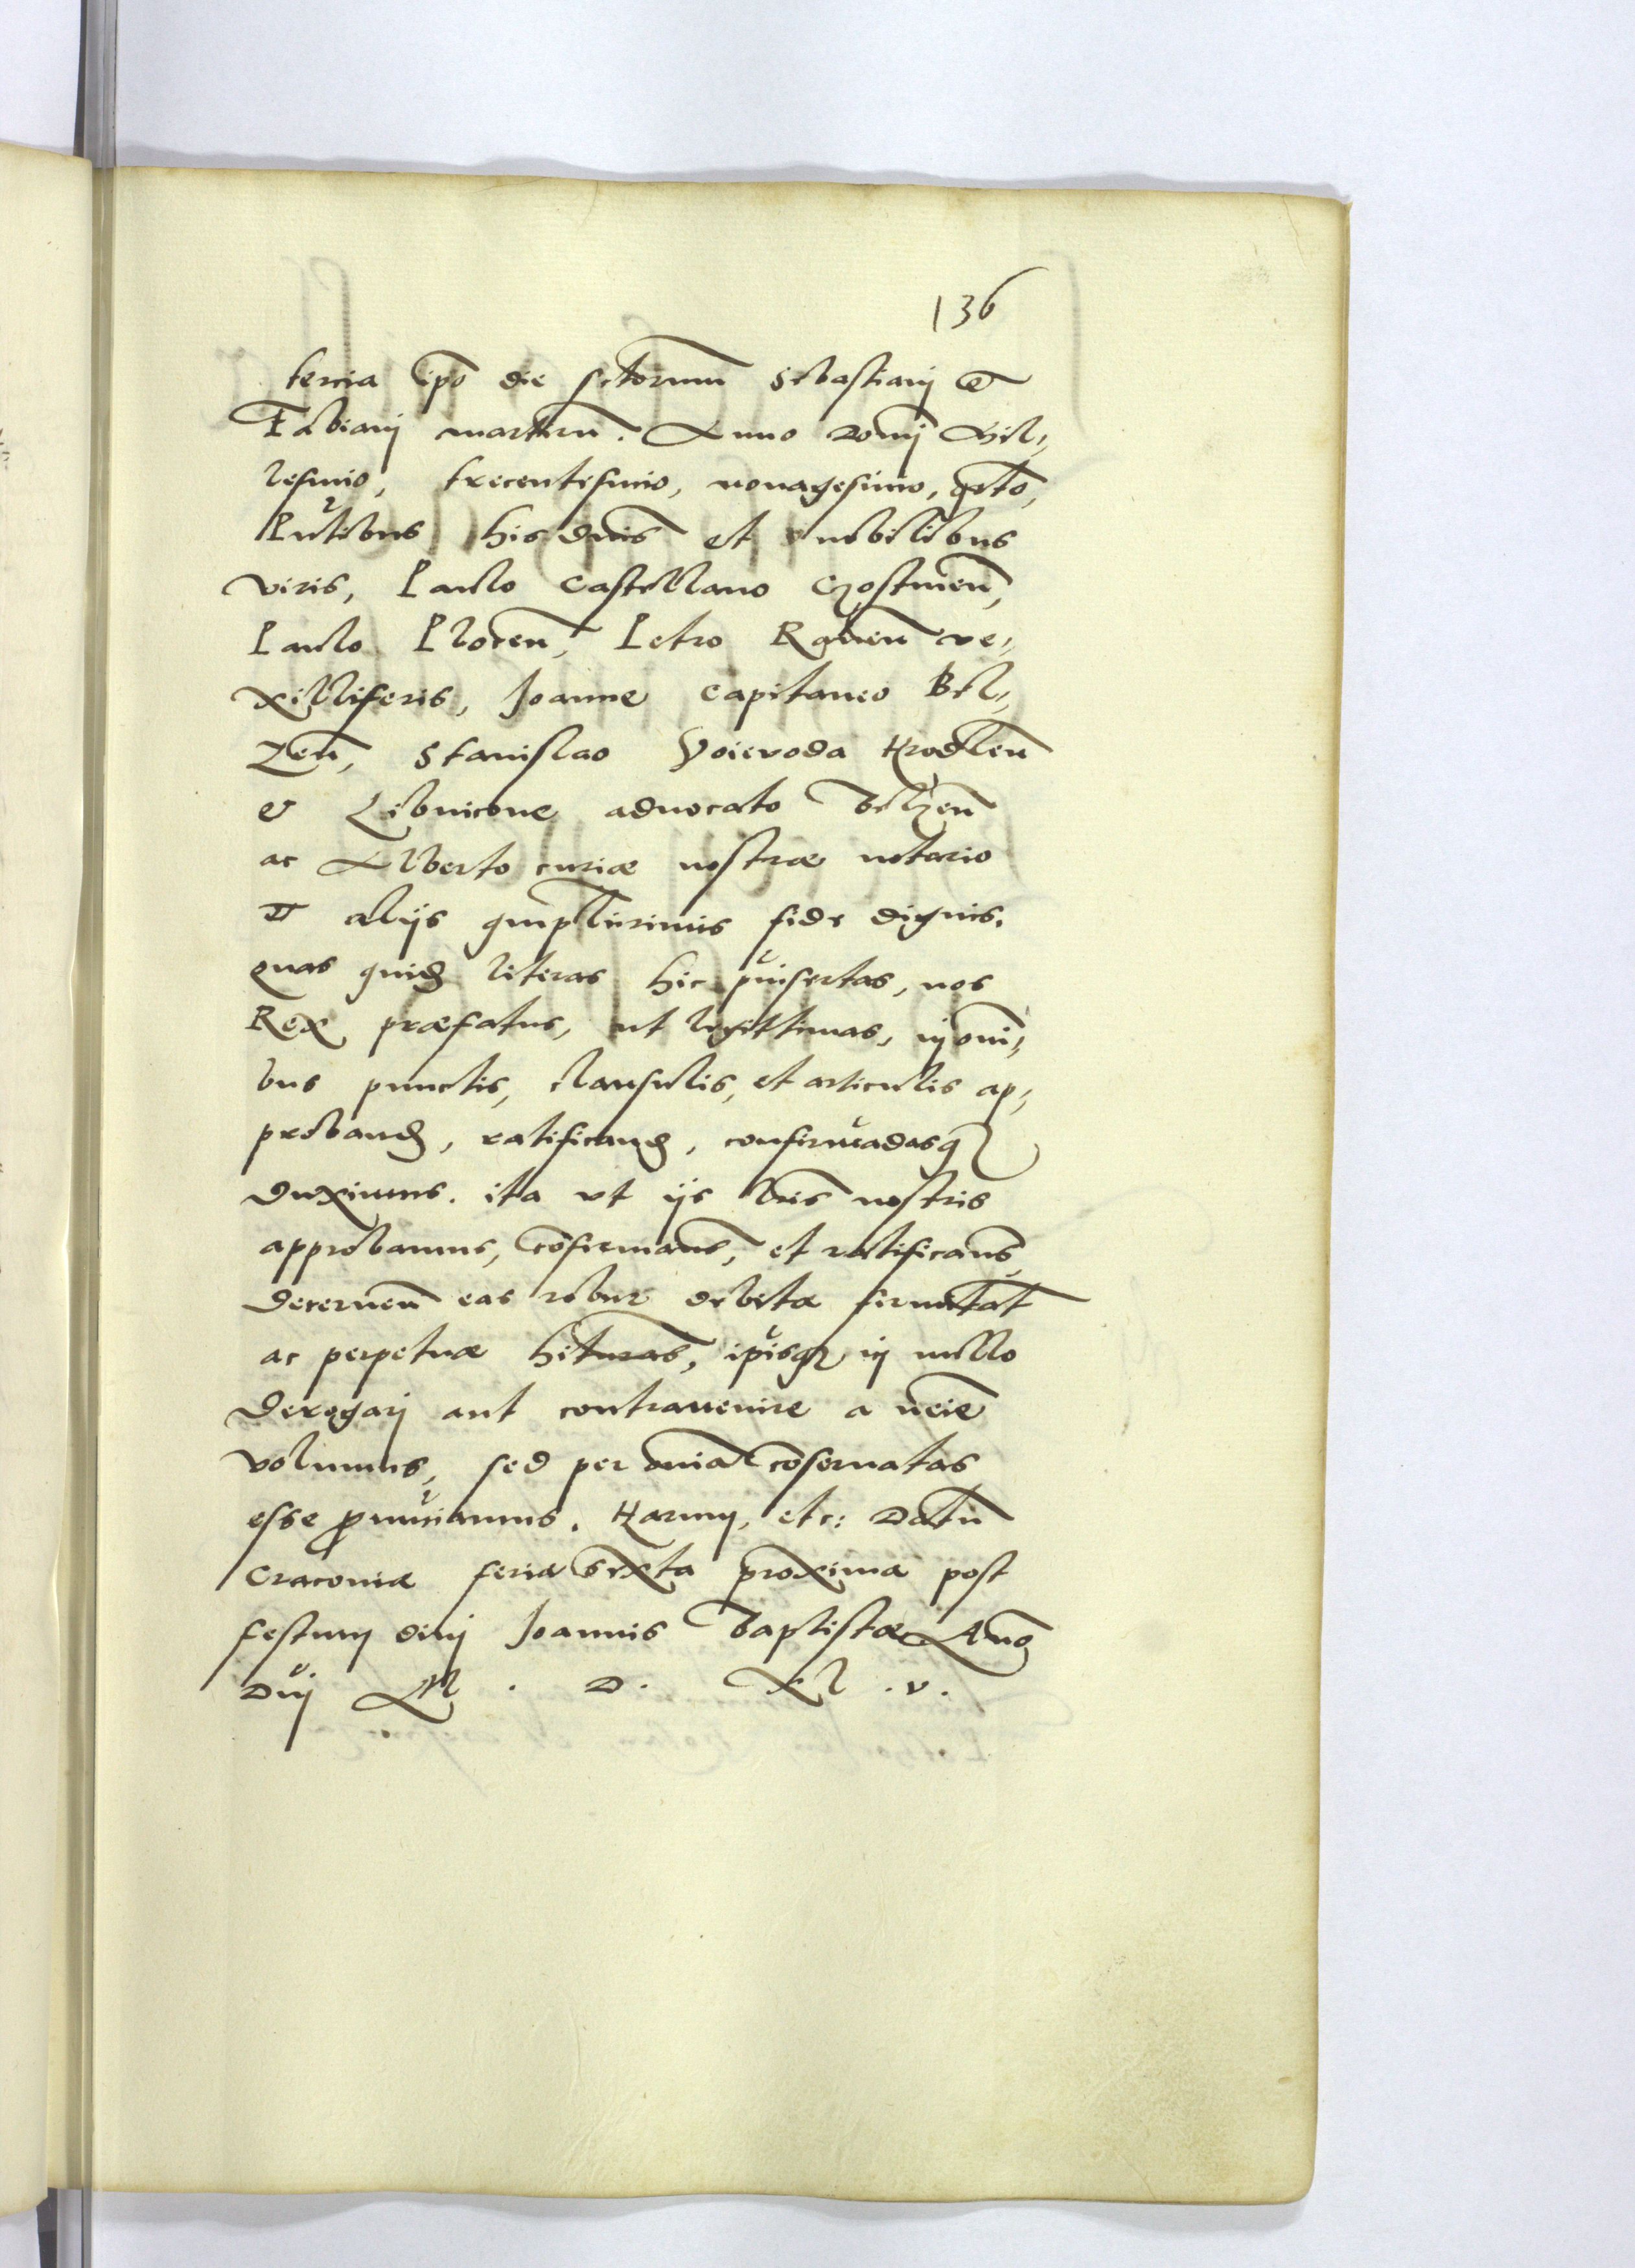 136
tercia ipō die sctorum Sebastiani et
Fabiani martirū. Anno Domĩ Mil-
lesimo, trecentesimo, nonagesimo, qrto,
Pñtibus his dñis et nobilibus
viris, Paulo Castellano Czostinen̄,
Paulo Plocen̄, Petro Raven̄ ve-
xilliferis, Joanne Capitaneo Bel-
zen̄, Stanislao Voievoda Hrodlen̄
et Libnicone advocato Belzen̄
ac Alberto curiæ nostræ notario
et alijs qmplurimis fide dignis.
Quas quidẽ literas hic p̃insertas, nos
Rex præfatus, ut legittimas, in om̄i-
bus punctis, clausulis, et articulis ap-
proband, ratificand, confirmãdasq
duximus. ita vt ijs lr̄is nostris
approbamus, cōfirmam̄s, et ratificam̄s,
decernen̄ eas robur debitæ firmitat
ac perpetuæ hituras, ip̃isq in nullo
derogari aut contrauenire a nēie
volumus, sed per om̃ia cōseruatas
esse p̱nũciamus. Harum, etc: Datū
Cracoviæ feria sexta proxima post
festum divi Joannis Baptistæ Año
Dñi M . D . Xl . v .